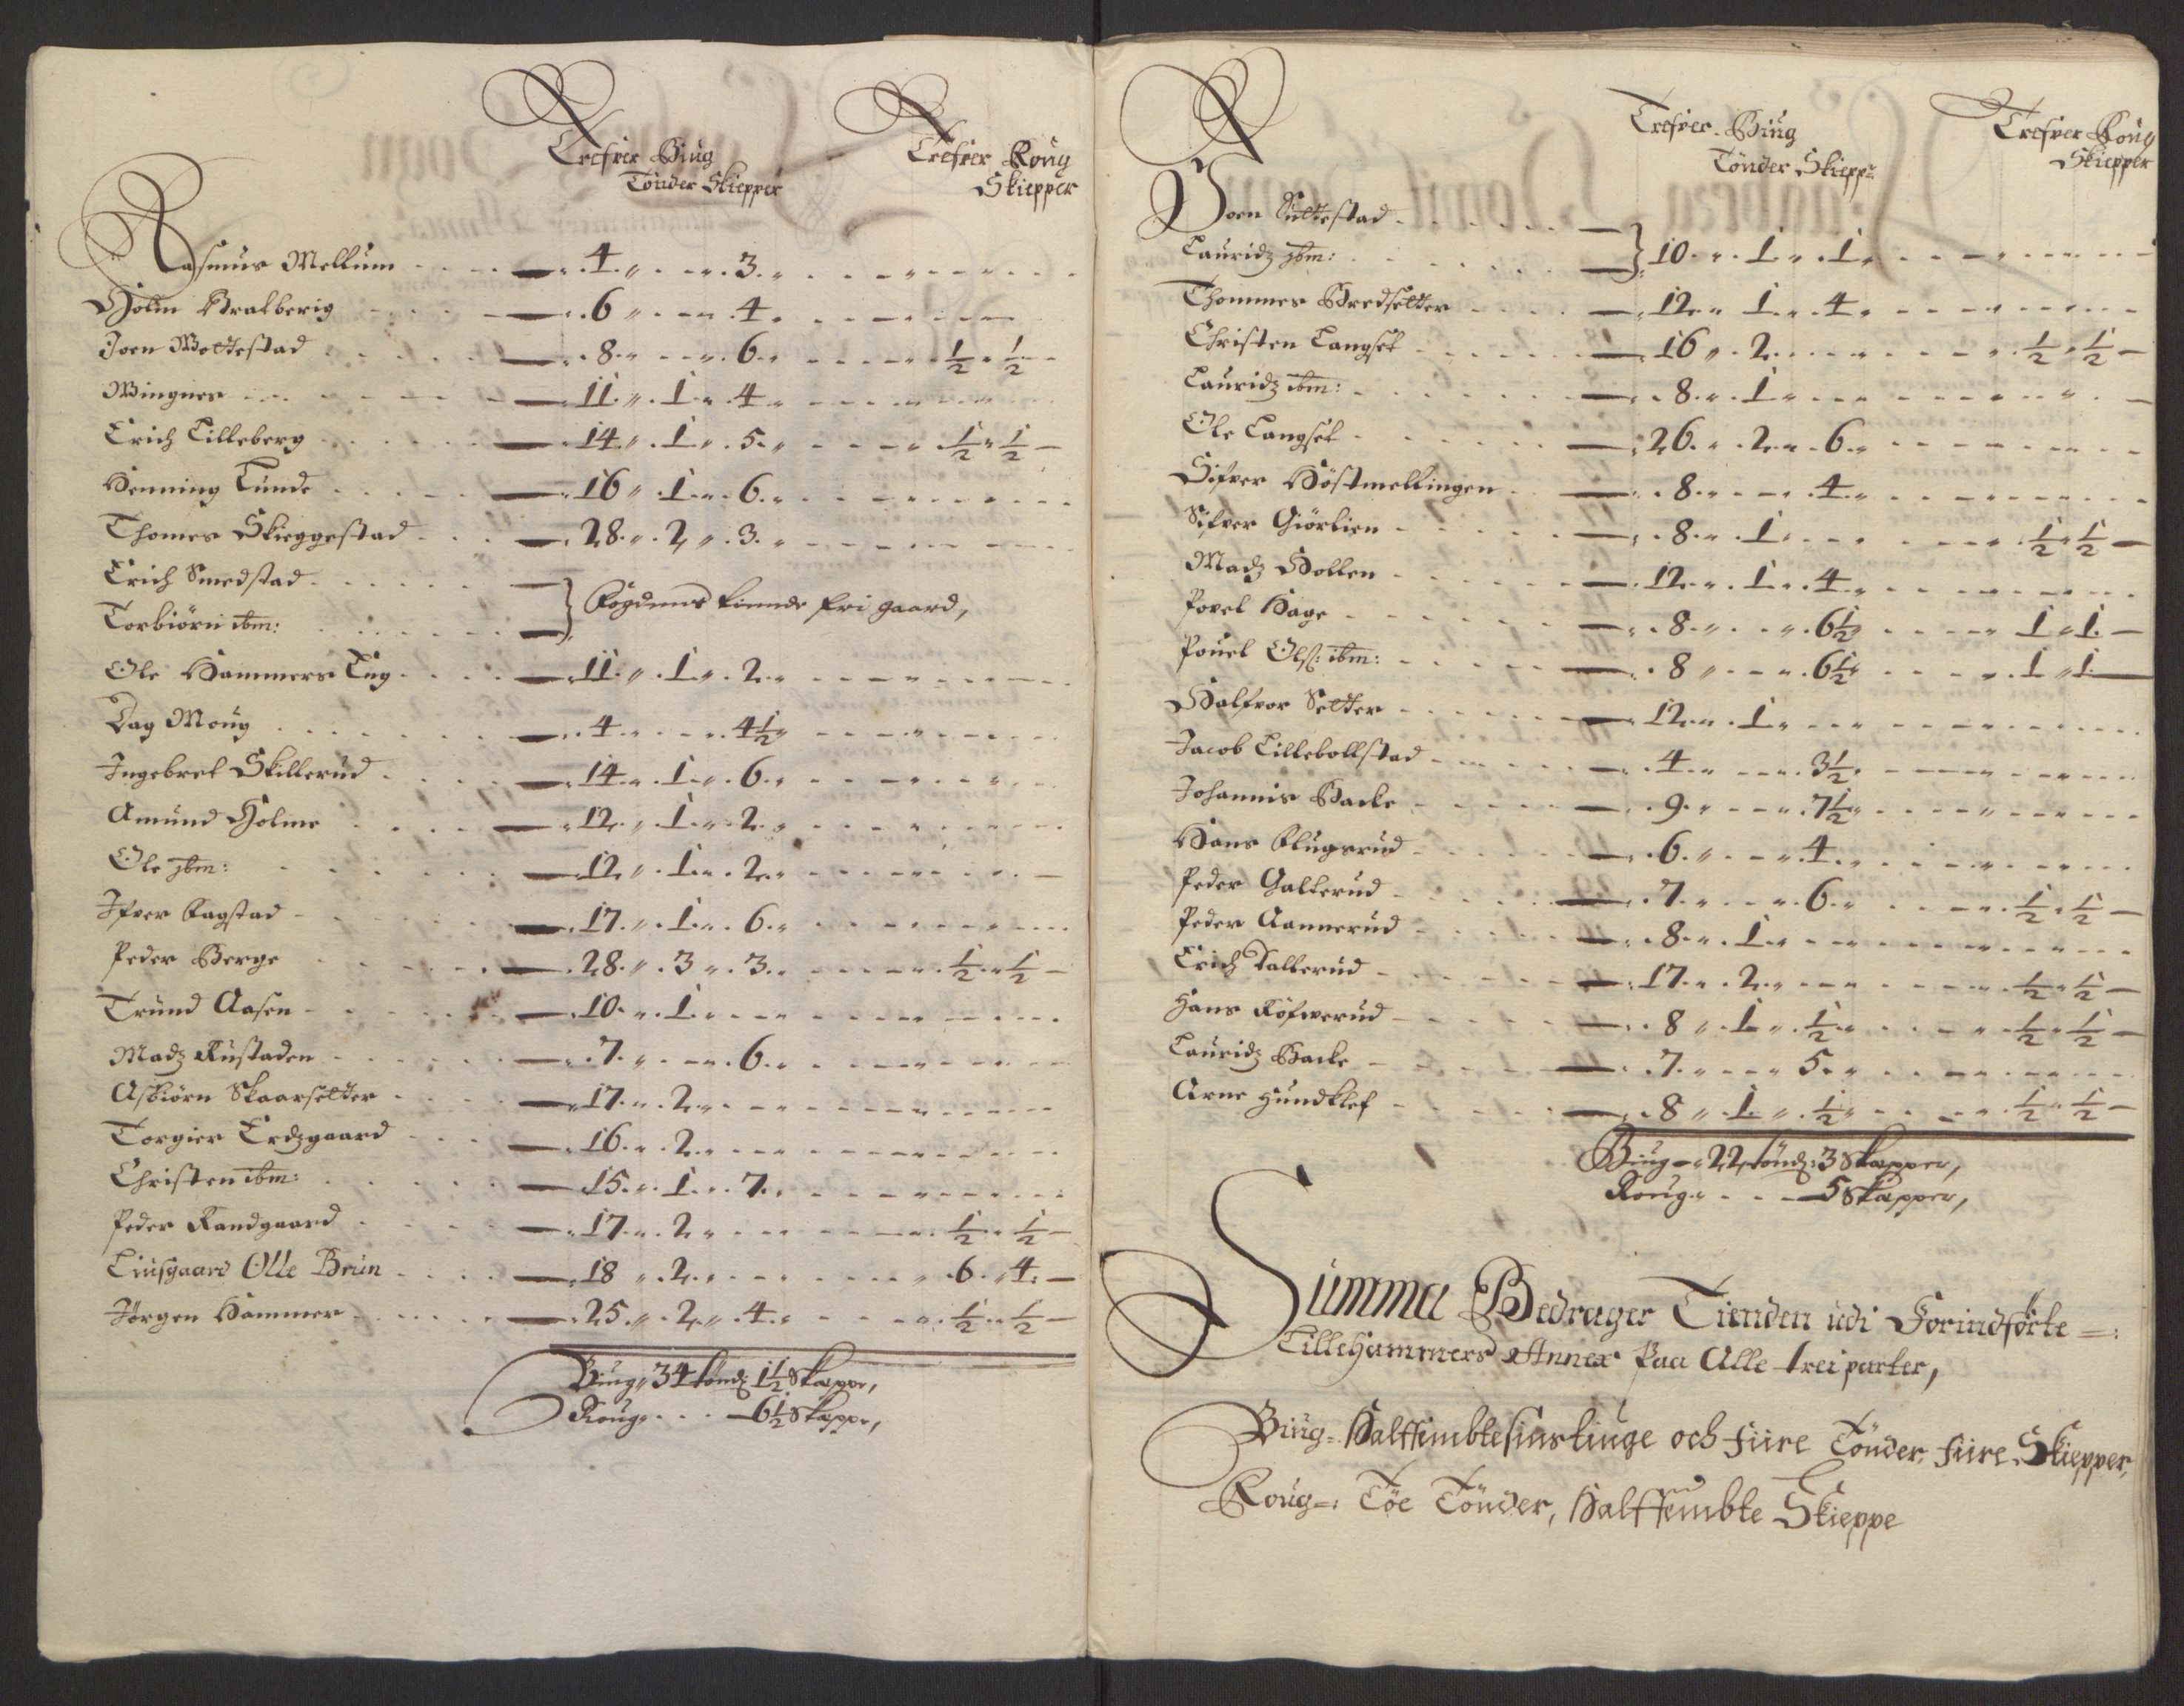 Trefver Biug Trefver Roug
Tönder Skiepper Skiepper
Rasmus Mellum 4 3
Holm Bralberig 6 4
Joen Woltestad 8 6 ½ ½
Wingnes 11 1 4
Erich Lilleberg 14 1 5 ½ ½
Henning Lunde 16 1 6
Thomes Skieggestad 28 2 3
Erich Smedstad
Torbiörn ibm: } Fogdens tiende fri gaard,
Ole Hammers Eng 11 1 2
Dag Moug 4 4½
Ingebret Skillerud 14 1 6
Amund Holme 12 1 2
Ole ibm: 12 1 2
Ifver Fagstad 17 1 6
Peder Berge 28 3 3 ½ ½
Trund Aasen 10 1
Madz Rustaden 7 6
Asbiörn Skaarsetter 17 2
Torgier Erdzgaard 16 2
Christen ibm: 15 1 7
Peder Randgaard 17 2 ½ ½
Liusgaard Olle Brun 18 2 6 4
Jörgen Hammer 25 2 4 ½ ½
Biug 34 tönd: 1½ Skeppe,
Roug 6½ Skeppe,
Trefver Biug Trefver Roug
Tönder Skiepp: Skiepper
Joen Sultestad
Lauridz ibm: } 10 1 1
Thommes Bredsetter 12 1 4
Christen Langset 16 2 ½ ½
Lauridz ibm: 8 1
Ole Langset 26 2 6
Sifver Höstmellingen 8 4
Sifver Giörlien 8 1 ½ ½
Madz Hollen 12 1 4
Povel Hage 8 6½ 1 1
Pouel Ols: ibm: 8 6½ 1 1
Halfvor Setter 12 1
Jacob Lillebollstad 4 3½
Johannis Backe 9 7½
Hans Flugsrud 6 4
Peder Galterud 7 6 ½ ½
Peder Aannerud 8 1
Erich Kallerud 17 2 ½ ½
Hans Röfverud 8 1 ½ ½ ½
Lauridz Backe 7 5
Arne Hundklef 8 1 ½ ½ ½
Biug 22 tönd: 3 Skepper,
Roug 5 Skepper,
Summa Bedrager Tienden udi Forindförte
Lillehammers Annex Paa Alle trei parter,
Biug Halffembtesinstiuge och fiire Tönder, fiire Skiepper,
Roug: Toe Tönder, Halffembte Skieppe